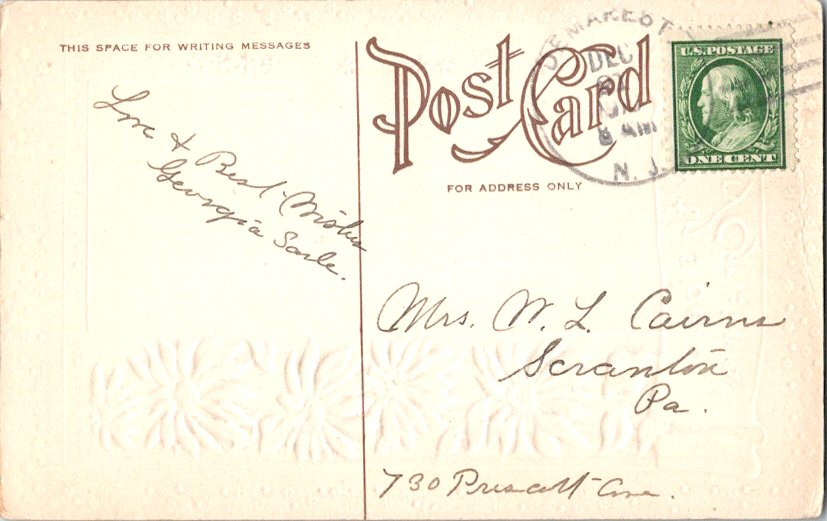 THIS SPACE FOR WRITING MESSAGES
Post Card
FOR ADDRESS ONLY
DEMAREST
DEC
8 AM
N. J.
U.S. POSTAGE
ONE CENT
Love & Best Wishes
Georgia
Mrs. W. L. Cairns
Scranton
Pa.
730 Prescott Ave.